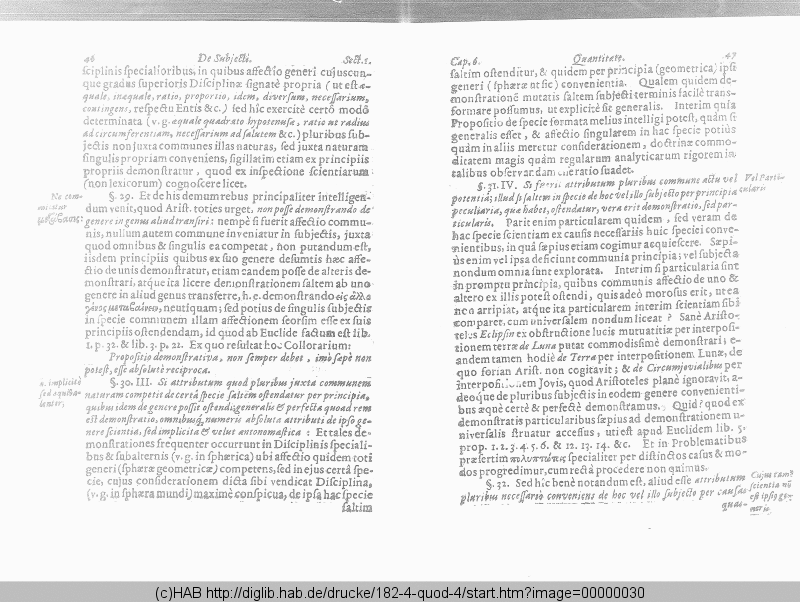 46 De Subjecti. Sect. 1.
sciplinis specialioribus, in quibus affectio generi cujuscun-
que gradus superioris Disciplinæ signatè propria (ut est æ-
quale, inæquale, ratio, proportio, idem, diversum, necessarium,
contingens, respectu Entis &c.) sed hîc exercitè certô modô
determinata (v. g. æquale quadrato hypotenusæ, ratio ut radius
ad circumferentiam, necessarium ad salutem &c.) pluribus sub-
jectis non juxta communes illas naturas, sed juxta naturam
singulis propriam conveniens, sigillatim etiam ex principiis
propriis demonstratur, quod ex inspectione scientiarum
(non lexicorum) cognoscere licet.
§. 29. Et de his demum rebus principaliter intelligen-
dum venit, quod Arist. toties urget, non posse demonstrando de
genere in genus aliud transiri: nempè si fuerit affectio commu-
nis, nullum autem commune inveniatur in subjectis, juxta
quod omnibus & singulis ea competat, non putandum est,
iisdem principiis quibus ex suo genere desumtis hæc affe-
ctio de unis demonstratur, etiam eandem posse de alteris de-
monstrari, atque ita licere demonstrationem saltem ab uno
genere in aliud genus transferre, h. e. demonstrando εἰς ἄλλο
γένος μεταβαίνειν, neutiquam; sed potius de singulis subjectis
in specie communem illam affectionem seorsim esse ex suis
principiis ostendendam, id quod ab Euclide factum est lib.
1. p. 32. & lib. 3. p. 22. Ex quo resultat hoc Collorarium:
Propositio demonstrativa, non semper debet, imò sæpè non
potest, esse absolutè reciproca.
n. implicitè
sed æquiva-
lanter,
§. 30. III. Si attributum quod pluribus juxta communem
naturam competit de certâ specie saltem ostendatur per principia,
quibus idem de genere possit ostendi; generalis & perfecta quoad rem
est demonstratio, omnibusq; numeris absoluta attributi de ipso ge-
nere scientia, sed implicita & velut antonomastica: Et tales de-
monstrationes frequenter occurrunt in Disciplinis speciali-
bus & subalternis (v. g. in sphærica) ubi affectio quidem toti
generi (sphæræ geometricæ) competens, sed in ejus certâ spe-
cie, cujus considerationem dicta sibi vendicat Disciplina,
(v. g. in sphæra mundi) maximè conspicua, de ipsa hac specie
saltim
Cap. 6. Quantitate. 47
saltim ostenditur, & quidem per principia (geometrica) ipsi
generi (sphæræ ut sic) convenientia. Qualem quidem de-
monstrationem mutatis saltem subjecti terminis facilè trans-
formare possumus, ut explicitè sit generalis. Interim quia
Propositio de specie formata melius intelligi potest, quàm si
generalis esset, & affectio singularem in hac specie potiùs
quàm in aliis meretur considerationem, doctrinæ commo-
ditatem magis quàm regularum analyticarum rigorem in
talibus observandam esse ratio suadet.
Vel Parti-
culari
§. 31. IV. Si attributum pluribus commune actu vel
potentiâ; illud si saltem in specie de hoc vel illo subjecto per principia
peculiaria, quæ habet, ostendatur, vera erit demonstratio, sed par-
ticularis. Parit enim particularem quidem, sed veram de
hac specie scientiam ex causis necessariis huic speciei conve-
nientibus, in quâ sæpius etiam cogimur acquiescere. Sæpi-
ùs enim vel ipsa deficiunt communia principia; vel subjecta
nondum omnia sunt explorata. Interim si particularia sint
in promptu principia, quibus communis affectio de uno &
altero ex illis potest ostendi, quis adeò morosus erit, ut ea
non arripiat, atque ita particularem interim scientiam sibi
comparet, cum universalem nondum liceat? Sanè Aristo-
teles Eclipsin ex obstructione lucis mutuatitiæ per interposi-
tionem terræ de Luna putat commodissimè demonstrari; e-
andem tamen hodiè de Terra per interpositionem Lunæ, de
quo forian Arist. non cogitavit; & de Circumjovialibus per
interpositionem Jovis, quod Aristoteles planè ignoravit, a-
deoque de pluribus subjectis in eodem genere convenienti-
bus æquè certè & perfectè demonstramus. Quid? quod ex
demonstratis particularibus sæpius ad demonstrationem u-
niversalis struatur accessus, uti est apud Euclidem lib. 5.
prop. 1. 2. 3. 4. 5. 6. & 12. 13. 14. &c. Et in Problematibus
præsertim πολυπτώτοις specialiter per distinctos casus & mo-
dos progredimur, cum rectà procedere non quimus.
§. 32. Sed hîc benè notandum est, aliud esse attributum
pluribus necessariò conveniens de hoc vel illo subjecto per causas
quai-
Cujus tamē
scientia nō
est ipso ge-
nerio